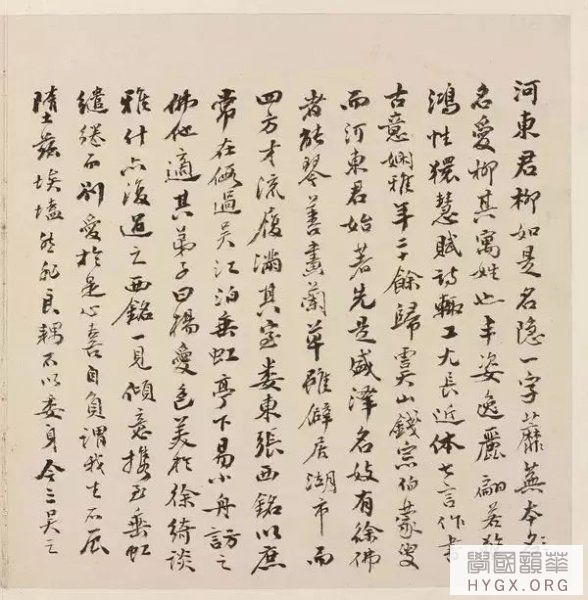 河東君柳如是名隐一字蘼蕪本
名愛柳其寓姓也丰姿逸麗翩若
鴻性獧慧賦詩輒工尤長近体七言作書
古意嫻雅年二十餘歸虞山錢宗伯蒙叟
而河東君始著先是盛澤名妓有徐佛
者能琴善畫蘭草雖僻居湖市而
四方才流履滿其室婁東張西銘以庶
常在假過吳江泊垂虹亭下易小舟訪之
佛他適其弟子曰楊愛色美於徐綺談
雅什亦復過之西銘一見傾意攜至垂虹
繾綣而別愛於是心喜自負謂我生不辰
墮茲埃壒然非良耦不以委身今三吳之
學國韻華
HYGX.ORG